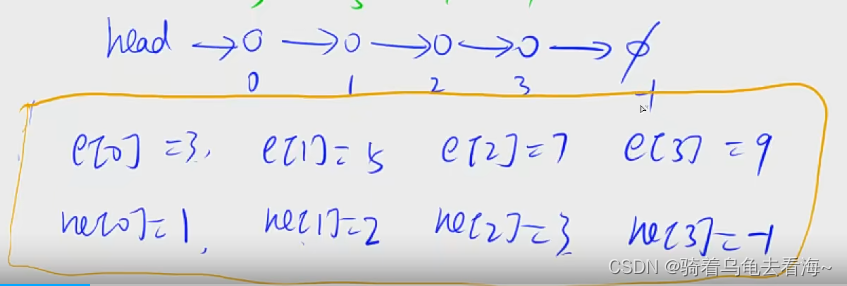 head → 0 → 0 → 0 → 0 → ∅
0 1 2 3 -1
e[0]=3, e[1]=5 e[2]=7 e[3]=9
ne[0]=1, ne[1]=2 ne[2]=3 ne[3]=-1
CSDN @骑着乌龟去看海~